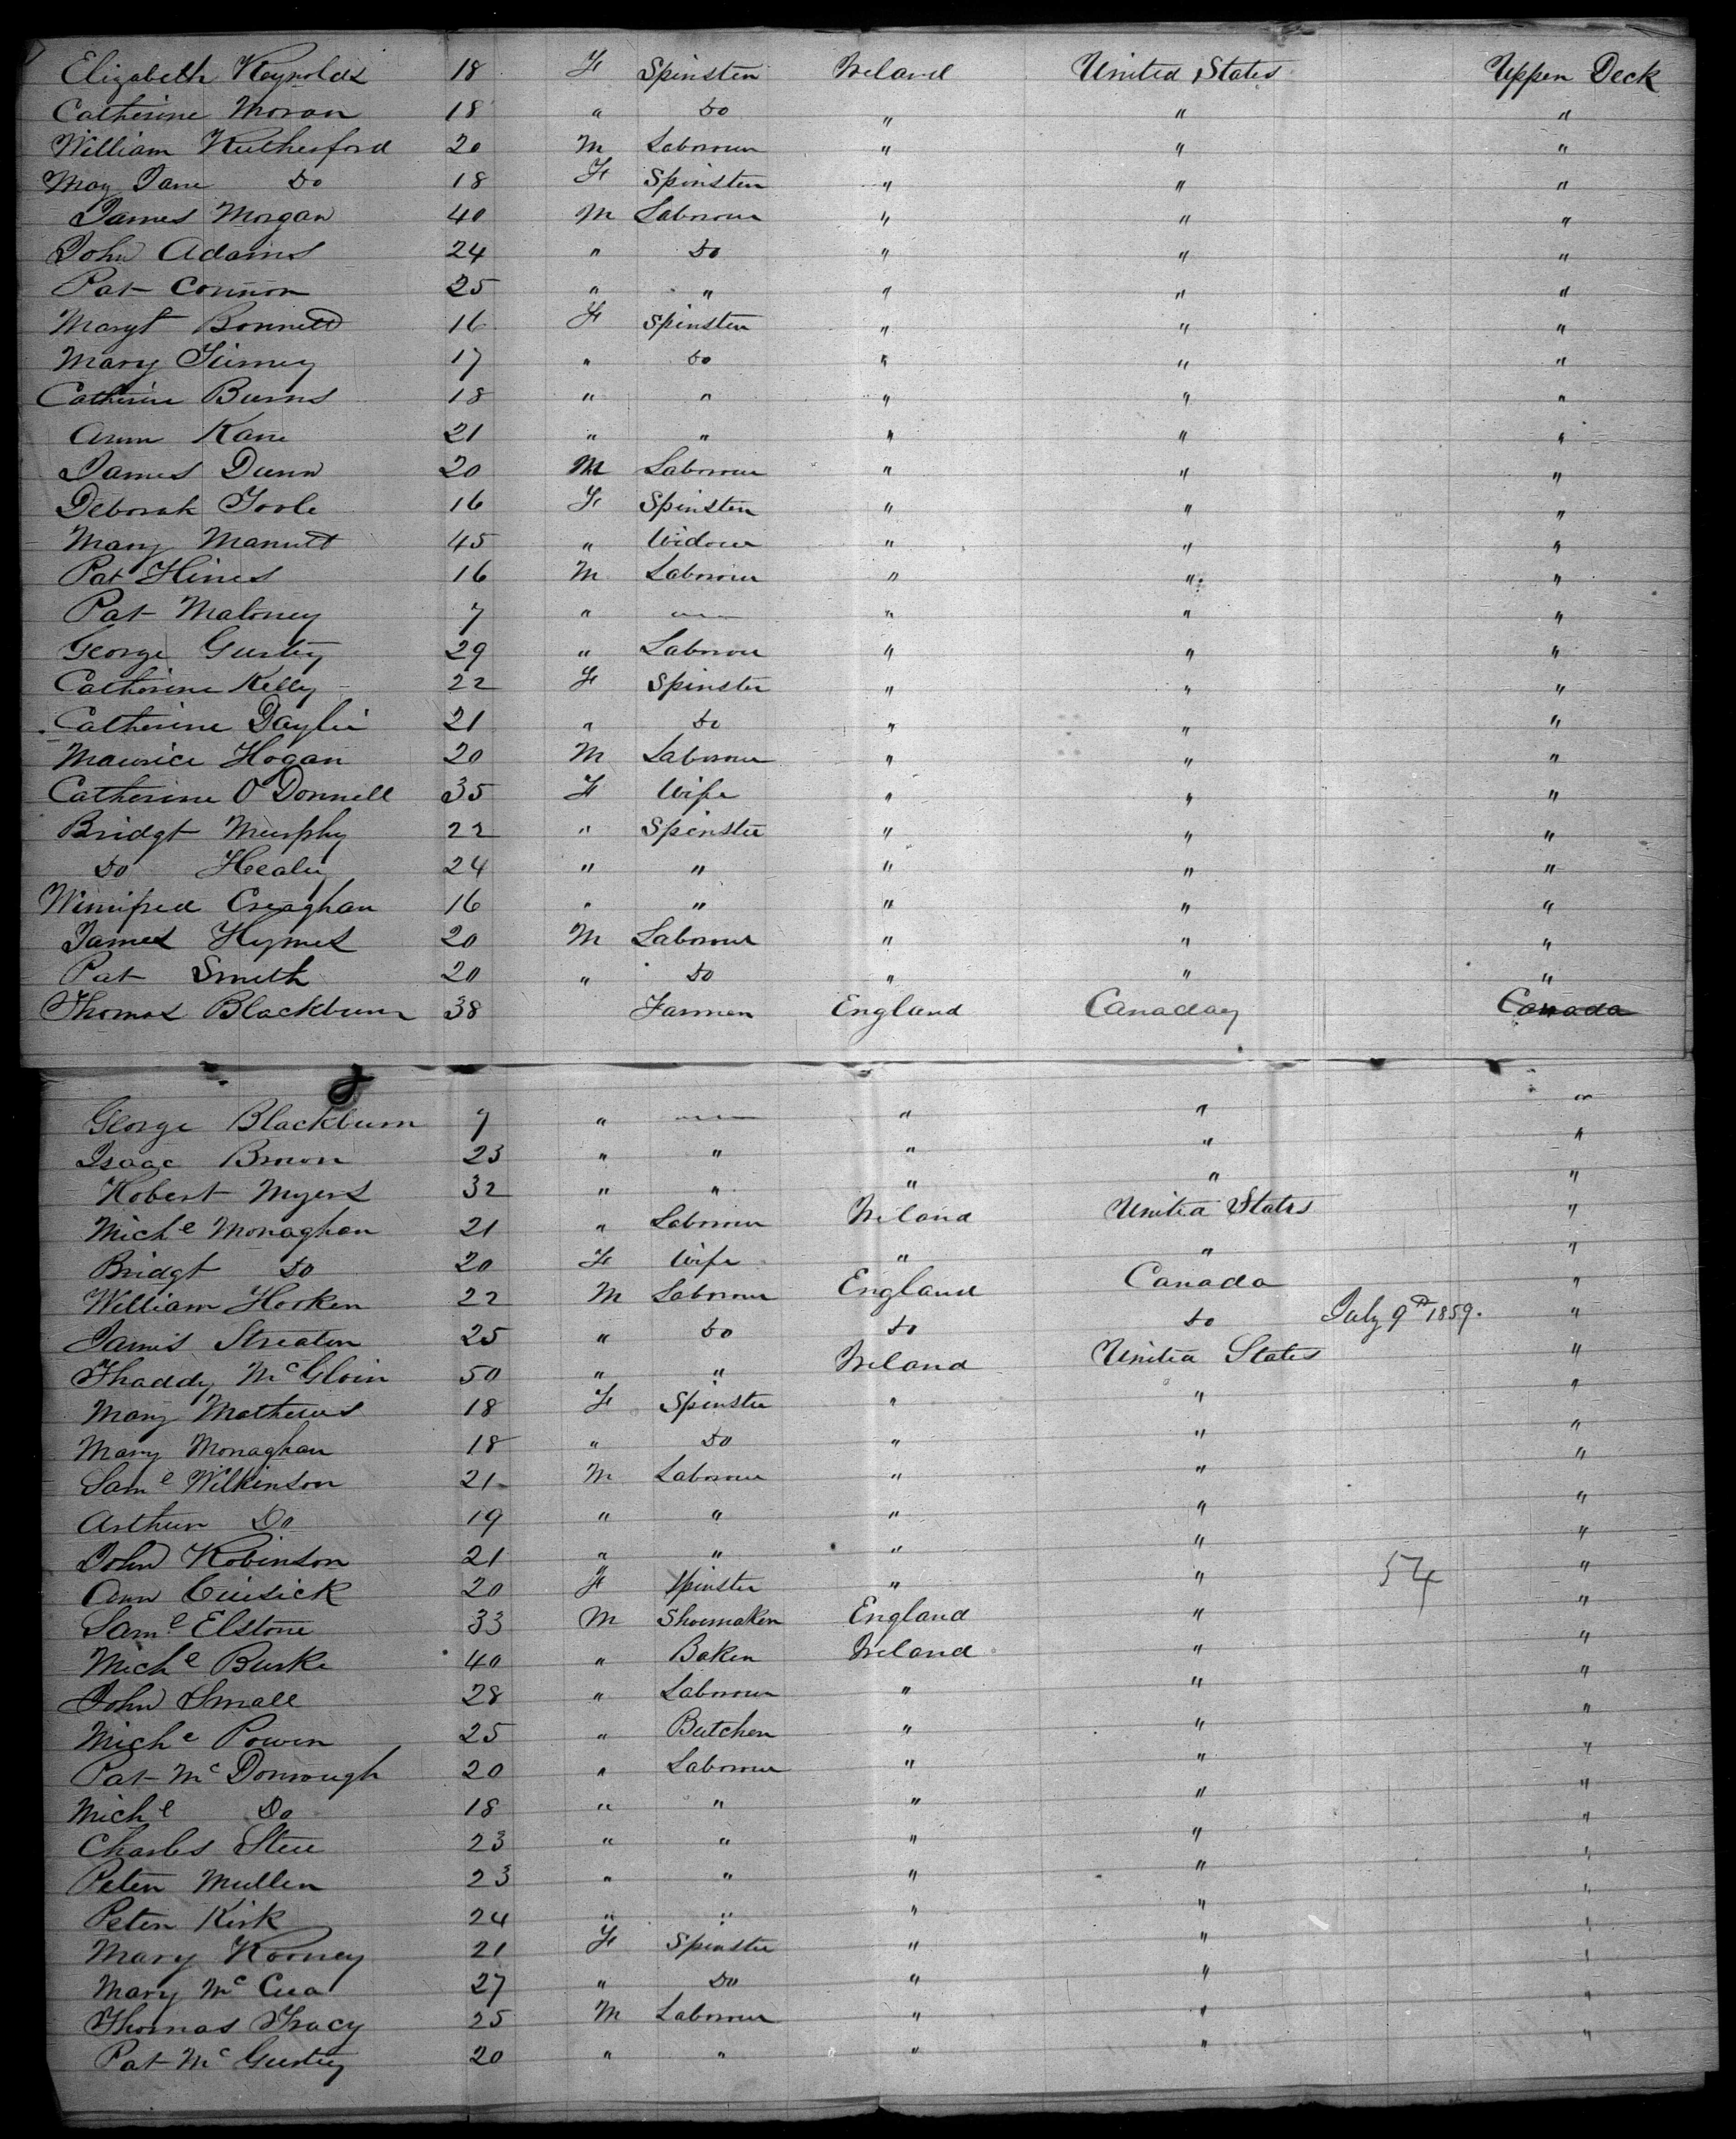 Elizabeth Reynolds 18 F Spinster Ireland United States Upper Deck
Catherine Moran 18 " Do " " "
William Rutherford 20 M Labourer " " "
May Jane Do 18 F Spinster " " "
James Morgan 40 M Labourer " " "
John Adams 24 " Do " " "
Pat Connor 25 " " " " "
Margt Bonnett 16 F Spinster " " "
Mary Tierney 17 " Do " " "
Catherine Burns 18 " " " " "
Ann Kane 21 " " " " "
James Dunn 20 M Labourer " " "
Deborah Toole 16 F Spinster " " "
Mary 45 " Widow " " "
Pat Hines 16 M Labourer " " "
Pat Maloney 7 " — " " "
George Gurty 29 " Labourer " " "
Catherine Kelly 22 F Spinster " " "
Catherine Daylie 21 " Do " " "
Maurice Hogan 20 M Labourer " " "
Catherine O'Donnell 35 F Wife " " "
Bridgt Murphy 22 " Spinster " " "
Do Healy 24 " " " " "
Winifred Creaghan 16 " " " " "
James Hymes 20 M Labourer " " "
Pat Smith 20 " Do " " "
Thomas Blackburn 38 Farmer England Canaday Canada
George Blackburn 7 " — " " "
Isaac Brown 23 " " " " "
Robert Myers 32 " " " " "
Michl Monaghan 21 " Labourer Ireland United States "
Bridgt Do 20 F Wife " " "
William Horken 22 M Labourer England Canada "
James Streaton 25 " Do Do Do July 9th 1859. "
Thaddy McGloin 50 " " Ireland United States "
Mary Mathews 18 F Spinster " " "
Mary Monaghan 18 " Do " " "
Saml Wilkinson 21 M Labourer " " "
Arthur Do 19 " " " " "
John Robinson 21 " " " " "
Ann Cusick 20 F Spinster " " 54 "
Saml Elstone 33 M Shoemaker England " "
Michl Burke 40 " Baker Ireland " "
John Small 28 " Labourer " " "
Michl Power 25 " Butcher " " "
Pat McDonough 20 " Labourer " " "
Michl Do 18 " " " " "
Charles 23 " " " " "
Peter Mullen 23 " " " " "
Peter Kirk 24 " " " " "
Mary Rooney 21 F Spinster " " "
Mary McCua 27 " Do " " "
Thomas Tracy 25 M Labourer " " "
Pat McGurty 20 " " " " "